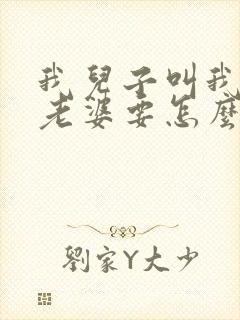 我兒子叫我
老婆要怎麼
劉家Y大少